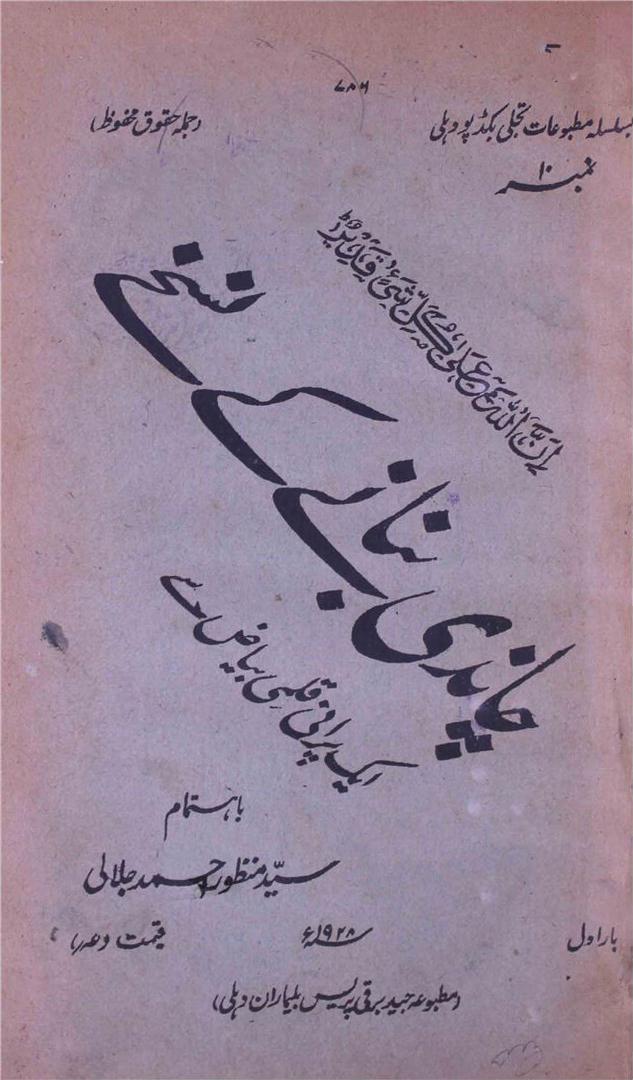 ۷۸۶
سلسلہ مطبوعات تجلی بکڈپو دہلی
(جملہ حقوق محفوظ)
نمبر ۱۰
اِنَّ اللّٰہَ عَلٰی کُلِّ شَیْءٍ قَدِیْرٌ
چاندی بنانے کے نسخے
ایک پرانی قلمی بیاض سے
باہتمام
سیّد منظور احمد جلالی
بار اول
۱۹۲۸ء
قیمت
(مطبوعہ جید برقی پریس بلیماران دہلی)